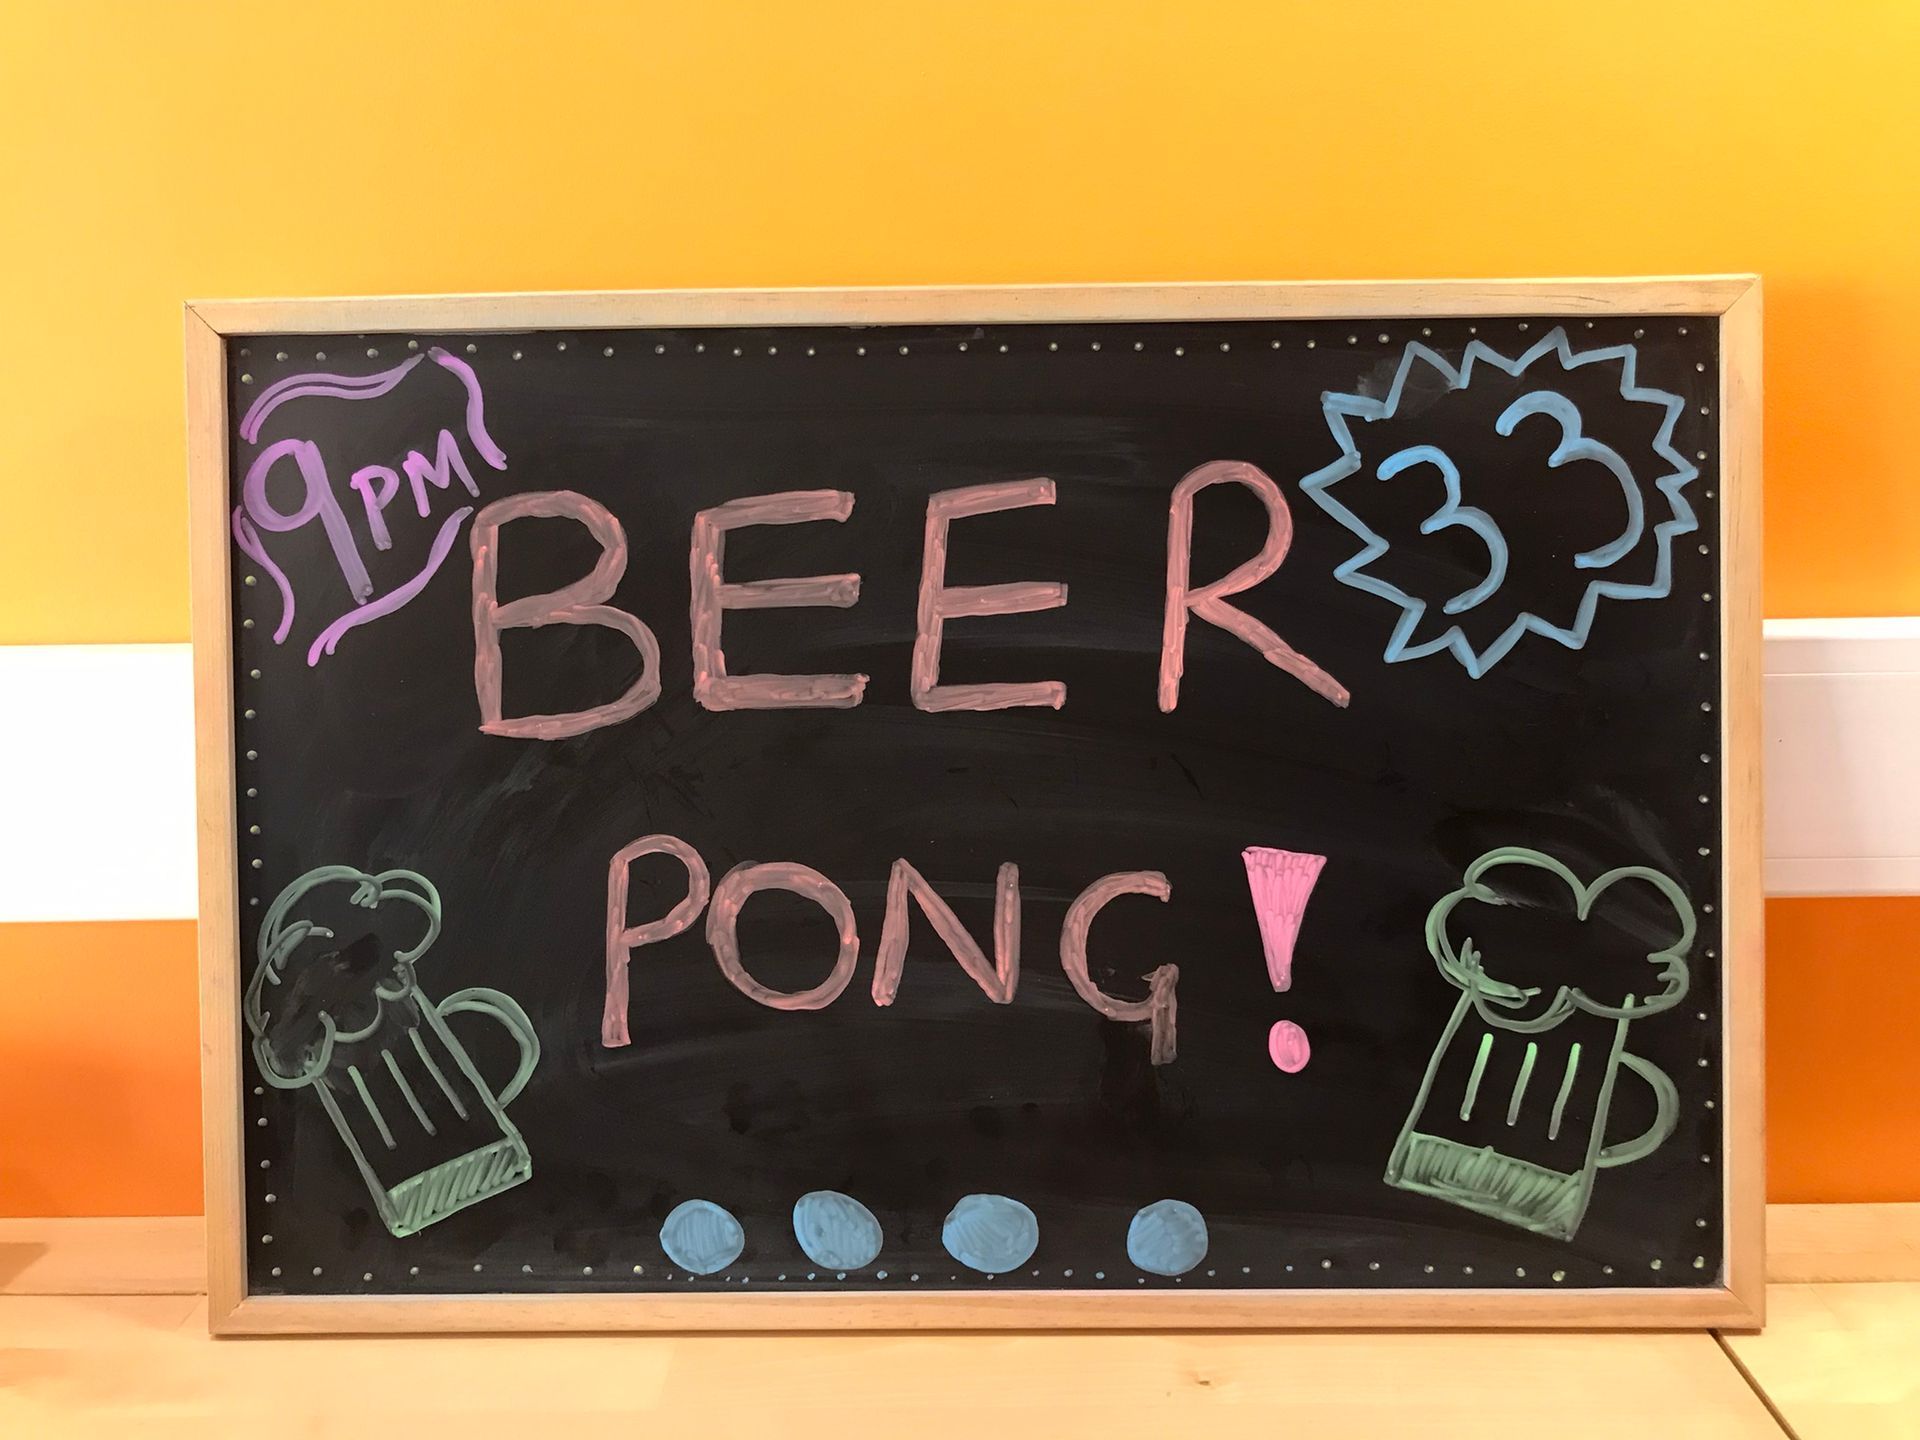 9PM
33
BEER
PONG!